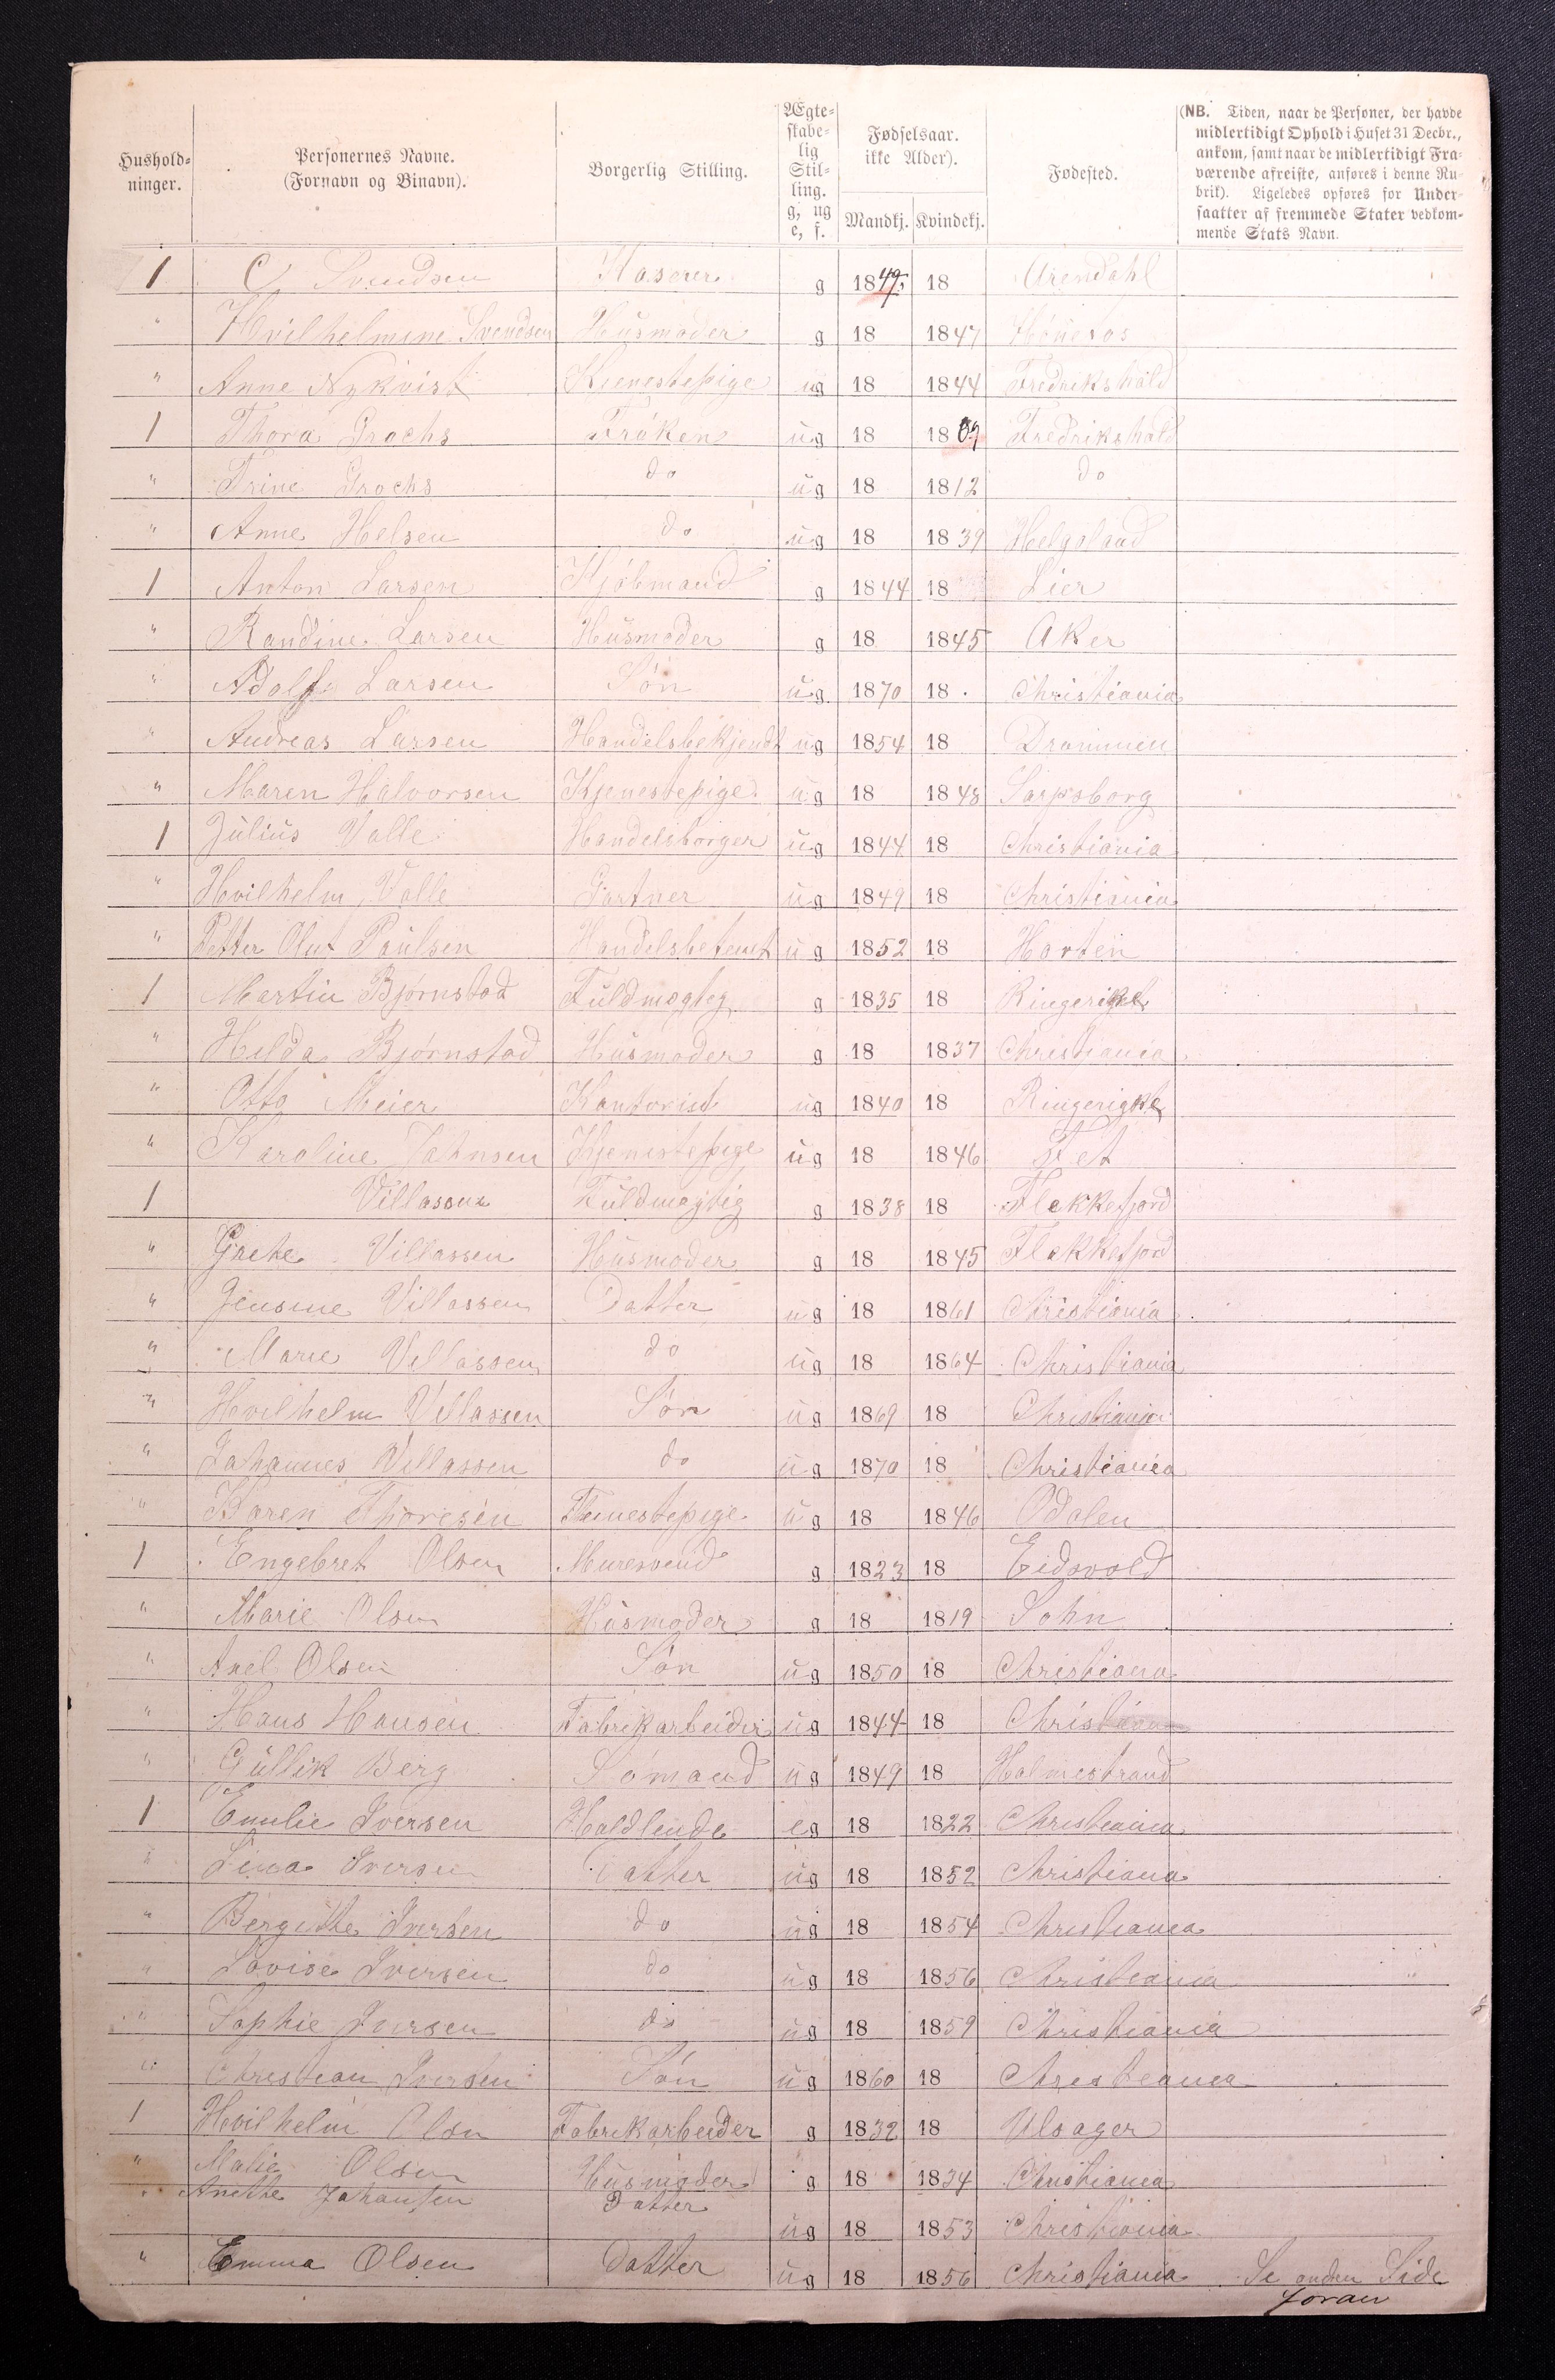 Hushold-
ninger.
Personernes Navne.
(Fornavn og Binavn).
Borgerlig Stilling.
Ægte-
skabe-
lig
Stil-
ling.
g, ug
e, f.
Fødselsaar.
ikke Alder).
Mandkj. Kvindekj.
Fødested.
(NB. Tiden, naar de Personer, der havde
midlertidigt Ophold i Huset 31 Decbr.,
ankom, samt naar de midlertidigt Fra-
værende afreiste, anføres i denne Ru-
brik). Ligeledes opføres for Under-
saatter af fremmede Stater vedkom-
mende Stats Navn.
1 C Svendsen Kaserer g 1849 18 Arendahl
" Hvilhelmine Svendsen Husmoder g 18 1847 Hønefos
" Anne Nykvist Kjenestepige ug 18 1844 Fredrikshald
1 Thora Grochs Frøken ug 18 1809 Fredrikshald
" Trine Grochs do ug 18 1812 do
" Anne Helsen do ug 18 1839 Helgoland
1 Anton Larsen Kjøbmand g 1844 18 Lier
" Randine Larsen Husmoder g 18 1845 Aker
" Adolf Larsen Søn ug 1870 18 Christiania
" Andreas Larsen Handelsbekjendt ug 1854 18 Drammen
" Maren Halvorsen Kjenestepige ug 18 1848 Sarpsborg
1 Julius Valle Handelsborger ug 1844 18 Christiania
" Hvilhelm Valle Gartner ug 1849 18 Christiania
" Petter Oluf Paulsen Handelsbetent ug 1852 18 Horten
1 Martin Bjørnstad Fuldmegteg g 1835 18 Ringeriget
" Hilda Bjørnstad Husmoder g 18 1837 Christiania
" Otto Meier Kontorist ug 1840 18 Ringeriget
" Karoline Jahnsen Kjenestepige ug 18 1846 Fet
1 Villassen Fuldmegtig g 1838 18 Flekkefjord
" Grethe Villassen Husmoder g 18 1845 Flekkefjord
" Jensine Villassen Datter ug 18 1861 Christiania
" Marie Villassen do ug 18 1864 Christiania
" Hvilhelm Villassen Søn ug 1869 18 Christiania
" Johannes Villassen do ug 1870 18 Christiania
" Karen Thoresen Tienestepige ug 18 1846 Odalen
1 Engebret Olsen Muresvend g 1823 18 Eidsvold
" Marie Olsen Husmoder g 18 1819 Sohn
" Axel Olsen Søn ug 1850 18 Christiana
" Hans Hansen Fabrikarbeider ug 1844 18 Christiana
" Gullik Berg Sømand ug 1849 18 Holmestrand
1 Emilie Iversen Holdlende eg 18 1822 Christiania
" Lina Iversen Datter ug 18 1852 Christiana
" Bergitte Iversen do ug 18 1854 Christiania
" Lovise Iversen do ug 18 1856 Christiania "
" Sophie Iversen do ug 18 1859 Christiania
" Christian Iversen Søn ug 1860 18 Christiania
1 Hvilhelm Olsn Fabrikarbeider g 1832 18 Ulsager
" Malie Olsen Husmoder g 18 1834 Christiania
" Anethe Johansen Datter ug 18 1853 Christiania
" Emma Olsen Datter ug 18 1856 Christiania Se anden Side
foran